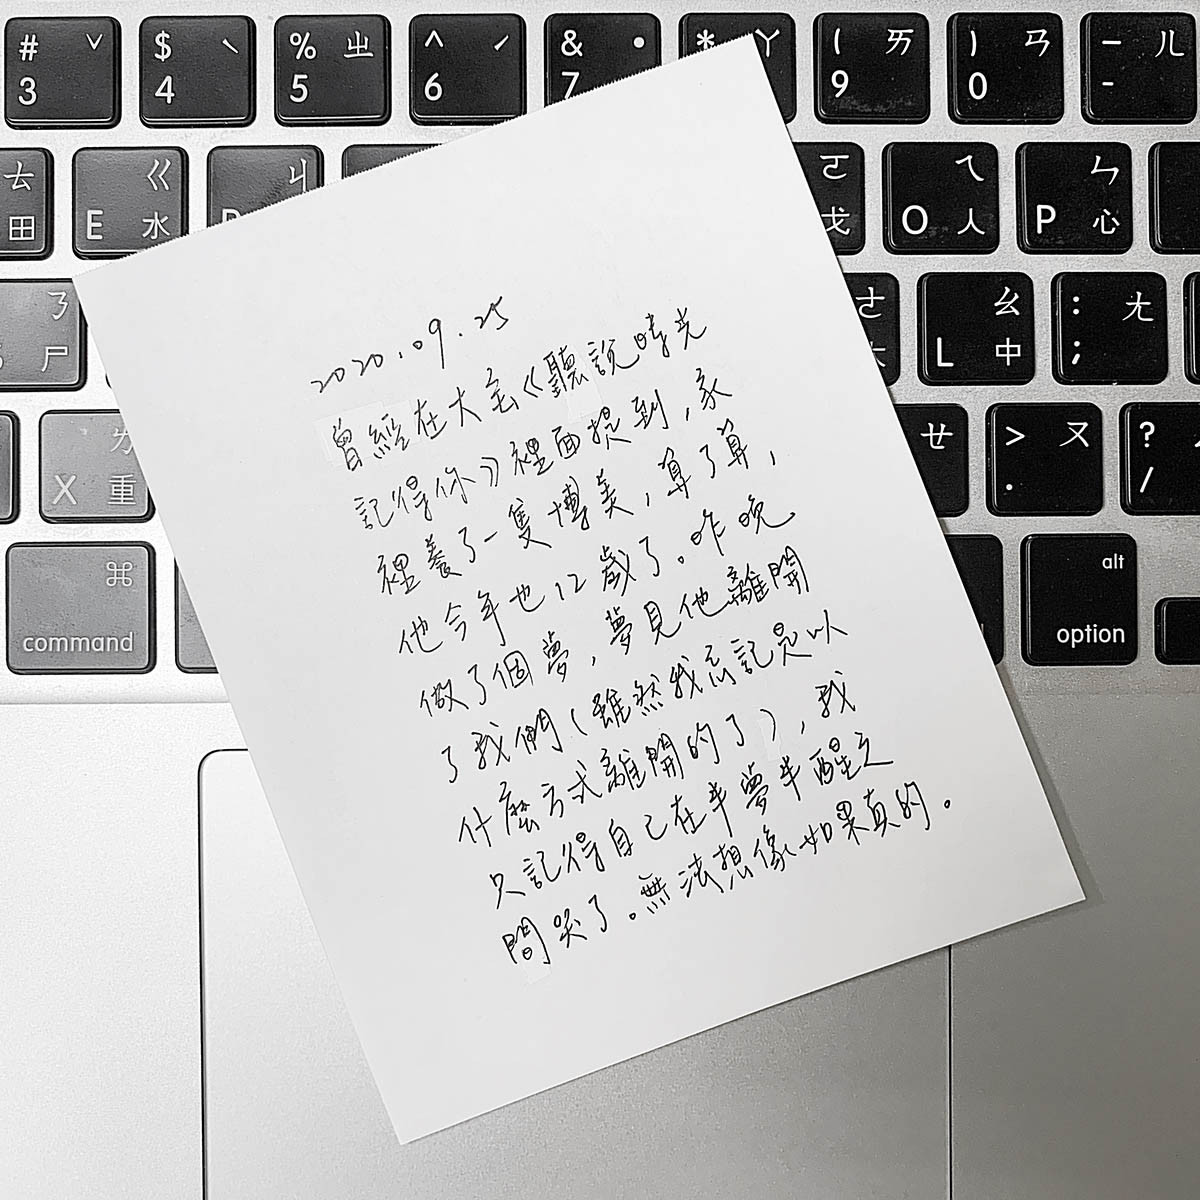 # ˇ 3
$ ˋ 4
% ㄓ 5
^ ˊ 6
& ˙ 7
* ㄚ
( ㄞ 9
) ㄢ 0
– ㄦ -
ㄊ 田
ㄍ E 水
ㄐ
ㄛ 戈
ㄟ O 人
ㄣ P 心
ㄋ 尸
ㄠ L 中
: ㄤ ;
ㄌ X 重
ㄝ
> ㄡ .
? /
⌘ command
alt option
2020.09.25
曾經在大宅《聽說時光
記得你》裡面提到,家
裡養了一隻博美,算了算,
他今年也12歲了。昨晚
做了個夢,夢見他離開
了我們(雖然我忘記是以
什麼方式離開的了),我
只記得自己在半夢半醒之
間哭了。無法想像如果真的。